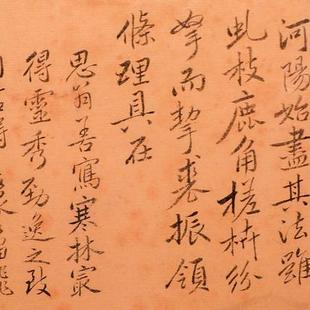 河陽始盡其法雖
虬枝鹿角槎枿紛
拏而挈裘振領
條理具在
思翁善寫寒林最
得靈秀勁逸之致